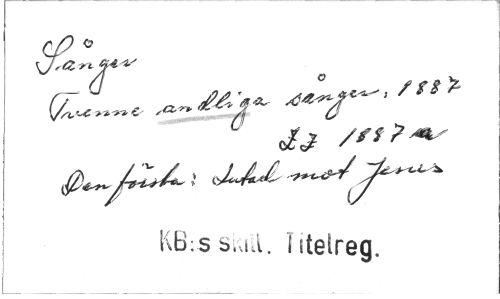 Sånger
Tvenne andliga sånger, 1887
ZJ 1887 a
Den första: Lutad mot Jesus
KB:s skill. Titelreg.